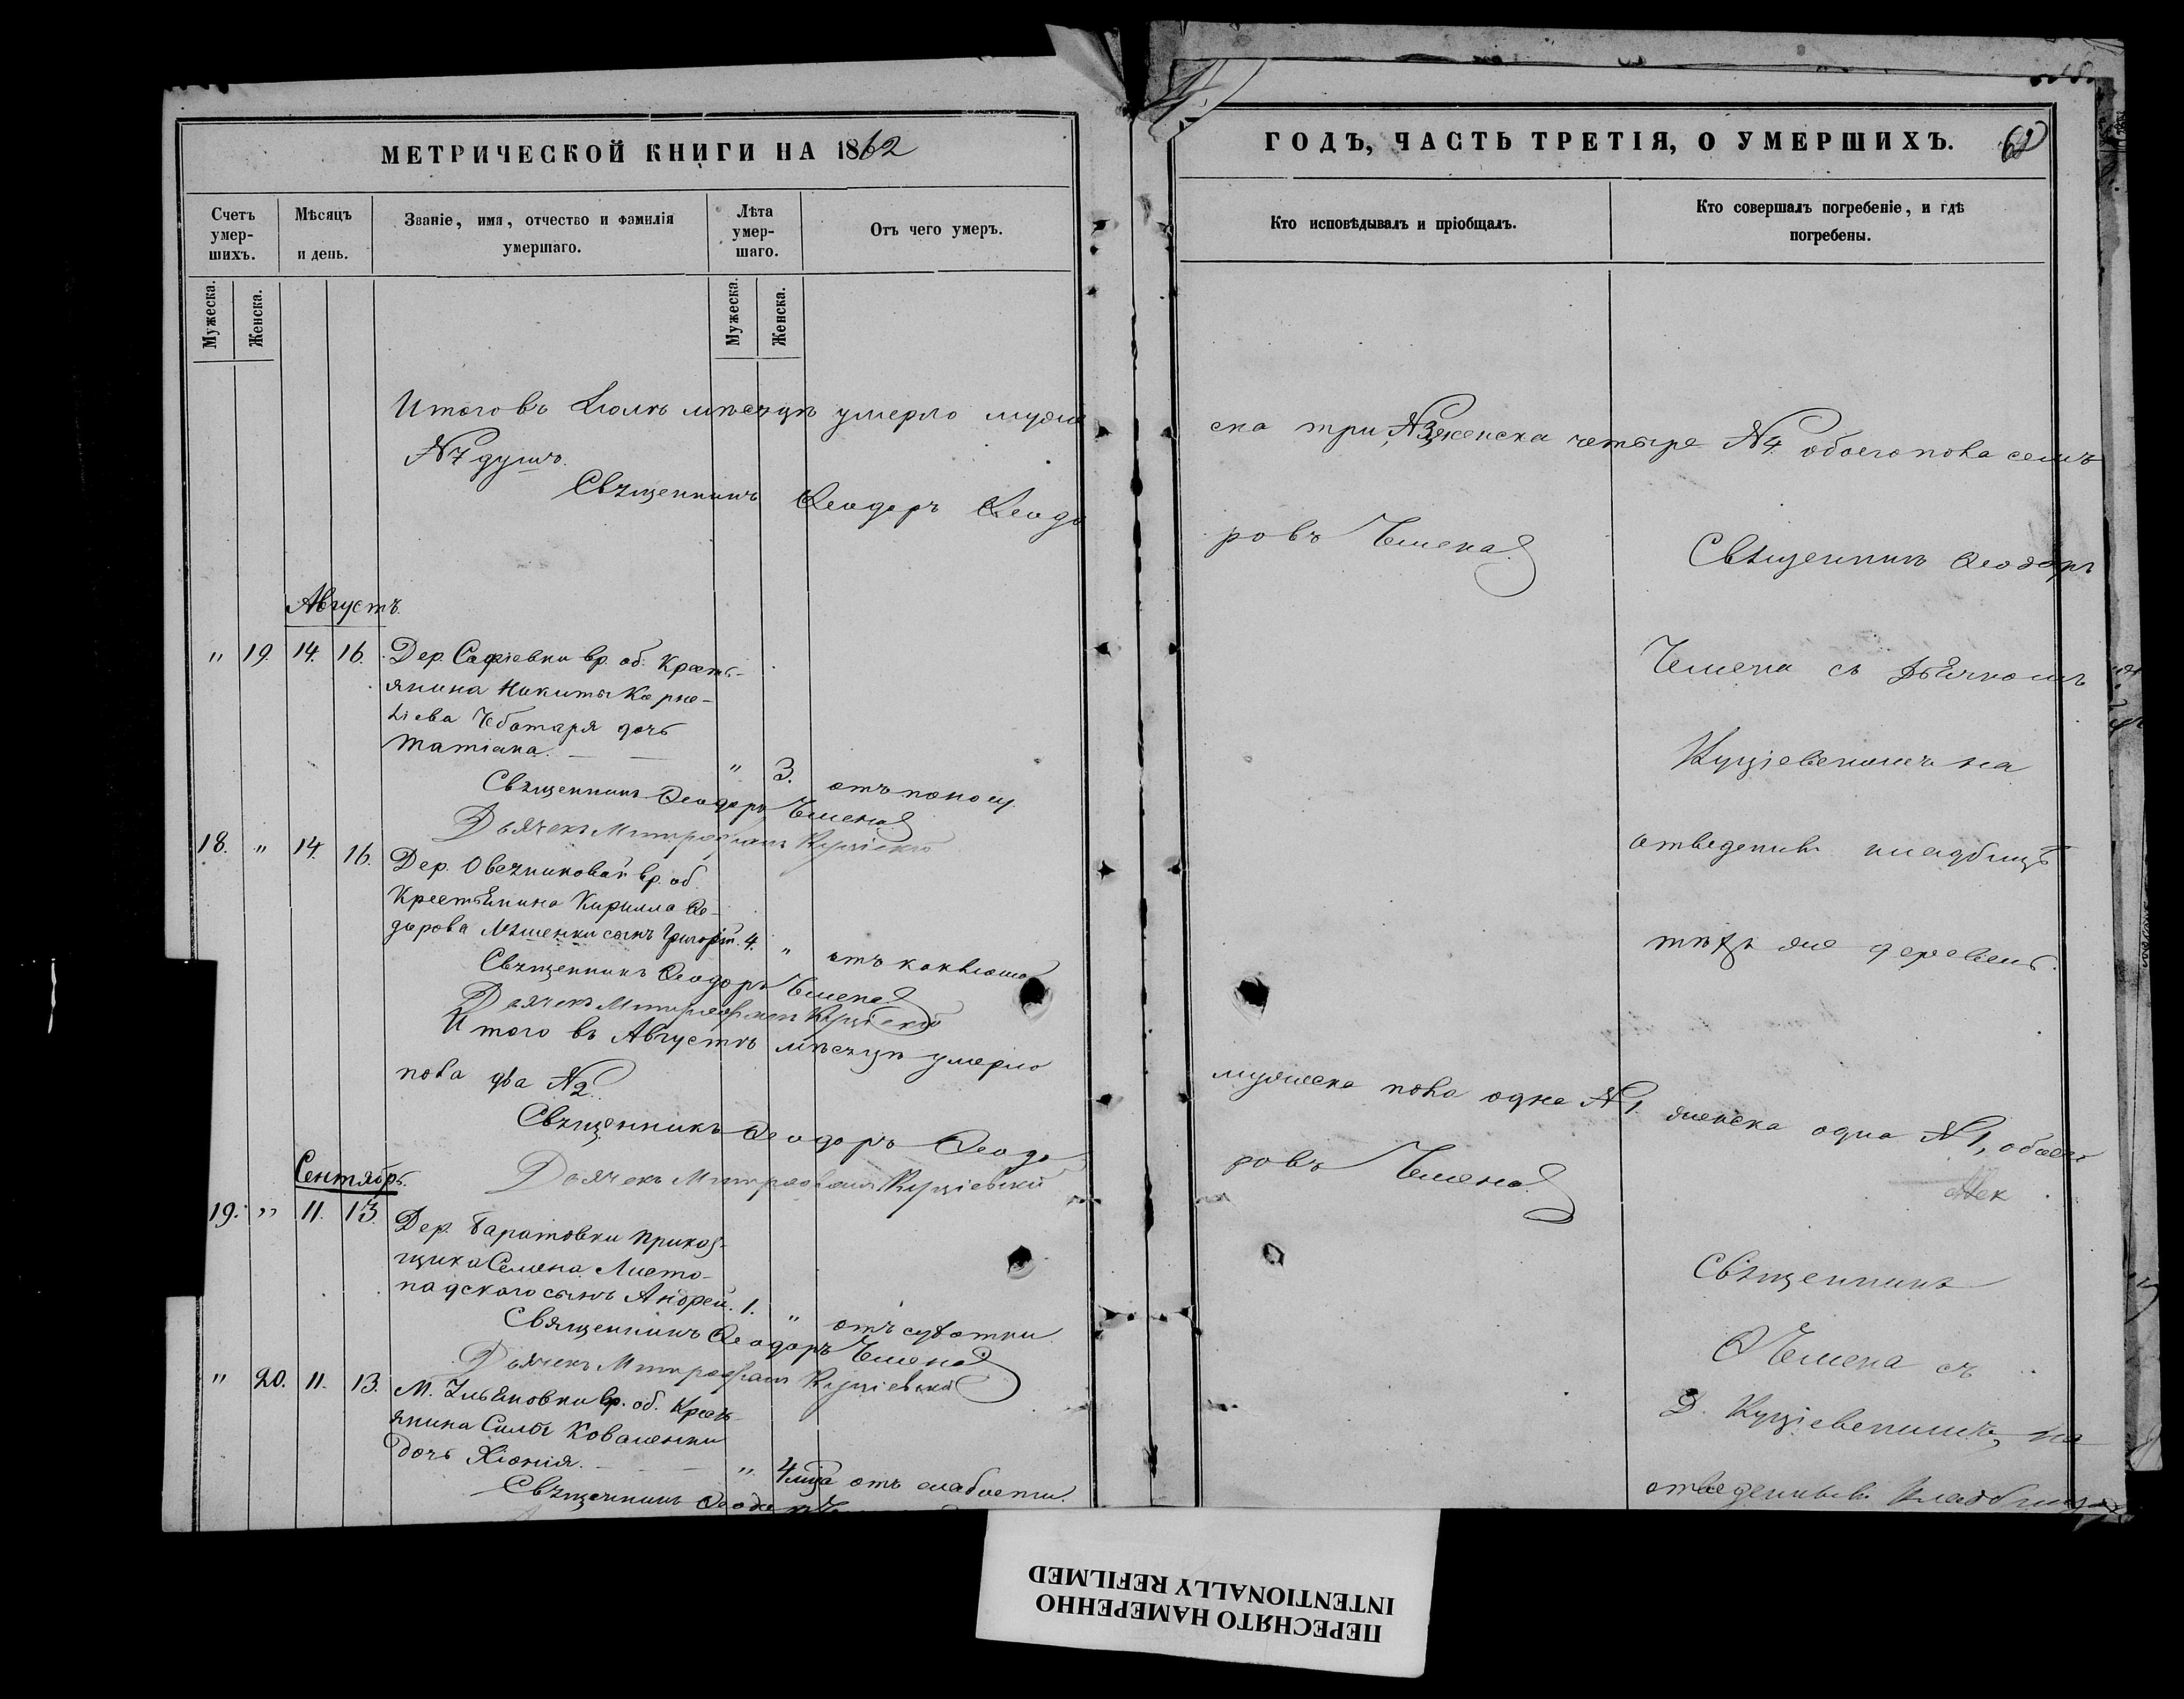 МЕТРИЧЕСКОЙ КНИГИ НА 1862
Счетъ умер-шихъ.
Мѣсяцъ и день.
Званіе, имя, отчество и фамилія умершаго.
Лѣта умер-шаго.
Отъ чего умеръ.
Мужеска.
Женска.
Мужеска.
Женска.
Итого въ Іюлѣ мѣсяцѣ умерло муже
№ 7 душъ.
Священникъ Ѳеодоръ Ѳеодо
Августъ.
" 19. 14. 16. Дер. Софіевки вр. об. Кресть-
янина Никиты Корне-
ліева Чеботаря дочь
Татіана. " 3. отъ поносу.
Священникъ Ѳеодоръ Чемена
Дьячекъ Митрофанъ
18. " 14. 16. Дер. Овсяниковой вр. об.
Крестьянина Кирилла Ѳе-
дорова сынъ Григорій. 4. " отъ коклюша
Священникъ Ѳеодоръ Чемена
Дьячекъ Митрофанъ
Итого въ Августѣ мѣсяцѣ умерло
пола два № 2.
Священникъ Ѳеодоръ Ѳеодо
Дьячекъ Митрофанъ Куціевскій
Сентябрь.
19. " 11. 13. Дер. Баратовки приказ-
щика Семена Листо-
падскаго сынъ Андрей. 1. " отъ сухотки
Священникъ Ѳеодоръ Чемена
Дьячекъ Митрофанъ Куціевскій
" 20. 11. 13. М. вр. об. Кресть-
янина Силы Коваленки
дочь Хіонія. " 4 мца отъ слабости.
Священникъ
ГОДЪ, ЧАСТЬ ТРЕТІЯ, О УМЕРШИХЪ. 62
Кто исповѣдывалъ и пріобщалъ.
Кто совершалъ погребеніе, и гдѣ погребены.
ска три, № 3, женска четыре № 4. обоего пола семъ
ровъ Чемена
Священникъ Ѳеодоръ
Чемена съ Дьячкомъ
Куціевскимъ на
отведенныхъ кладбищ
тѣхъ же деревень.
мужеска пола одна № 1. женска одна № 1, обоего
ровъ Чемена
Священникъ
Ѳ Чемена съ
Д. Куціевскимъ, на
отведенныхъ кладбищ
ПЕРЕСНЯТО НАМЕРЕННО
INTENTIONALLY REFILMED